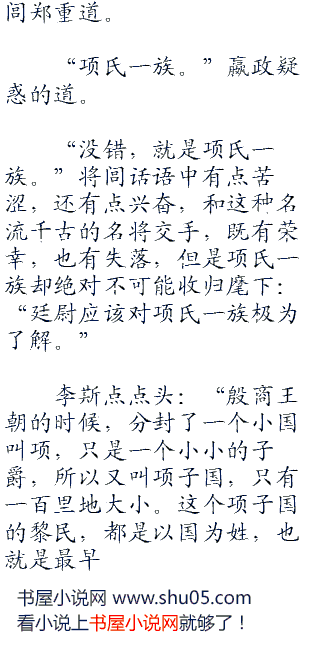 闾郑重道。
“项氏一族。”嬴政疑
惑的道。
“没错，就是项氏一
族。”将闾话语中有点苦
涩，还有点兴奋，和这种名
流千古的名将交手，既有荣
幸，也有失落，但是项氏一
族却绝对不可能收归麾下：
“廷尉应该对项氏一族极为
了解。”
李斯点点头：“殷商王
朝的时候，分封了一个小国
叫项，只是一个小小的子
爵，所以又叫项子国，只有
一百里地大小。这个项子国
的黎民，都是以国为姓，也
就是最早
书屋小说网 www.shu05.com
看小说上书屋小说网就够了！